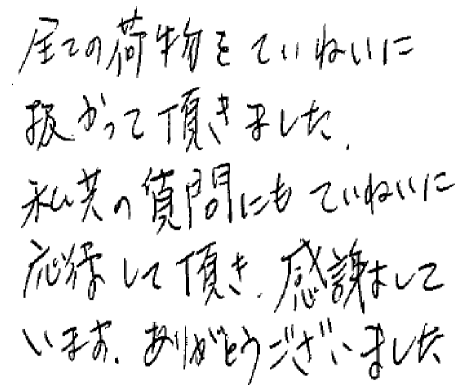 全ての荷物をていねいに
扱かって頂きました.
私共の質問にもていねいに
応答して頂き.感謝して
います.ありがとうございました